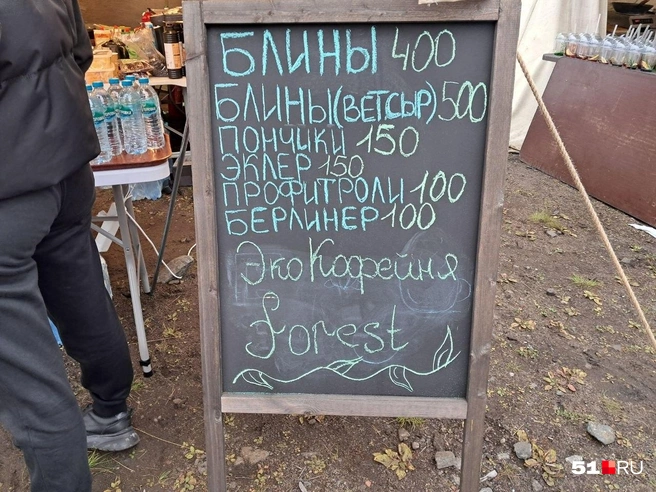 БЛИНЫ 400
БЛИНЫ(ВЕТСЫР)500
ПОНЧИКИ 150
ЭКЛЕР 150
ПРОФИТРОЛИ 100
БЕРЛИНЕР 100
ЭкоКофейня
Forest
51.RU